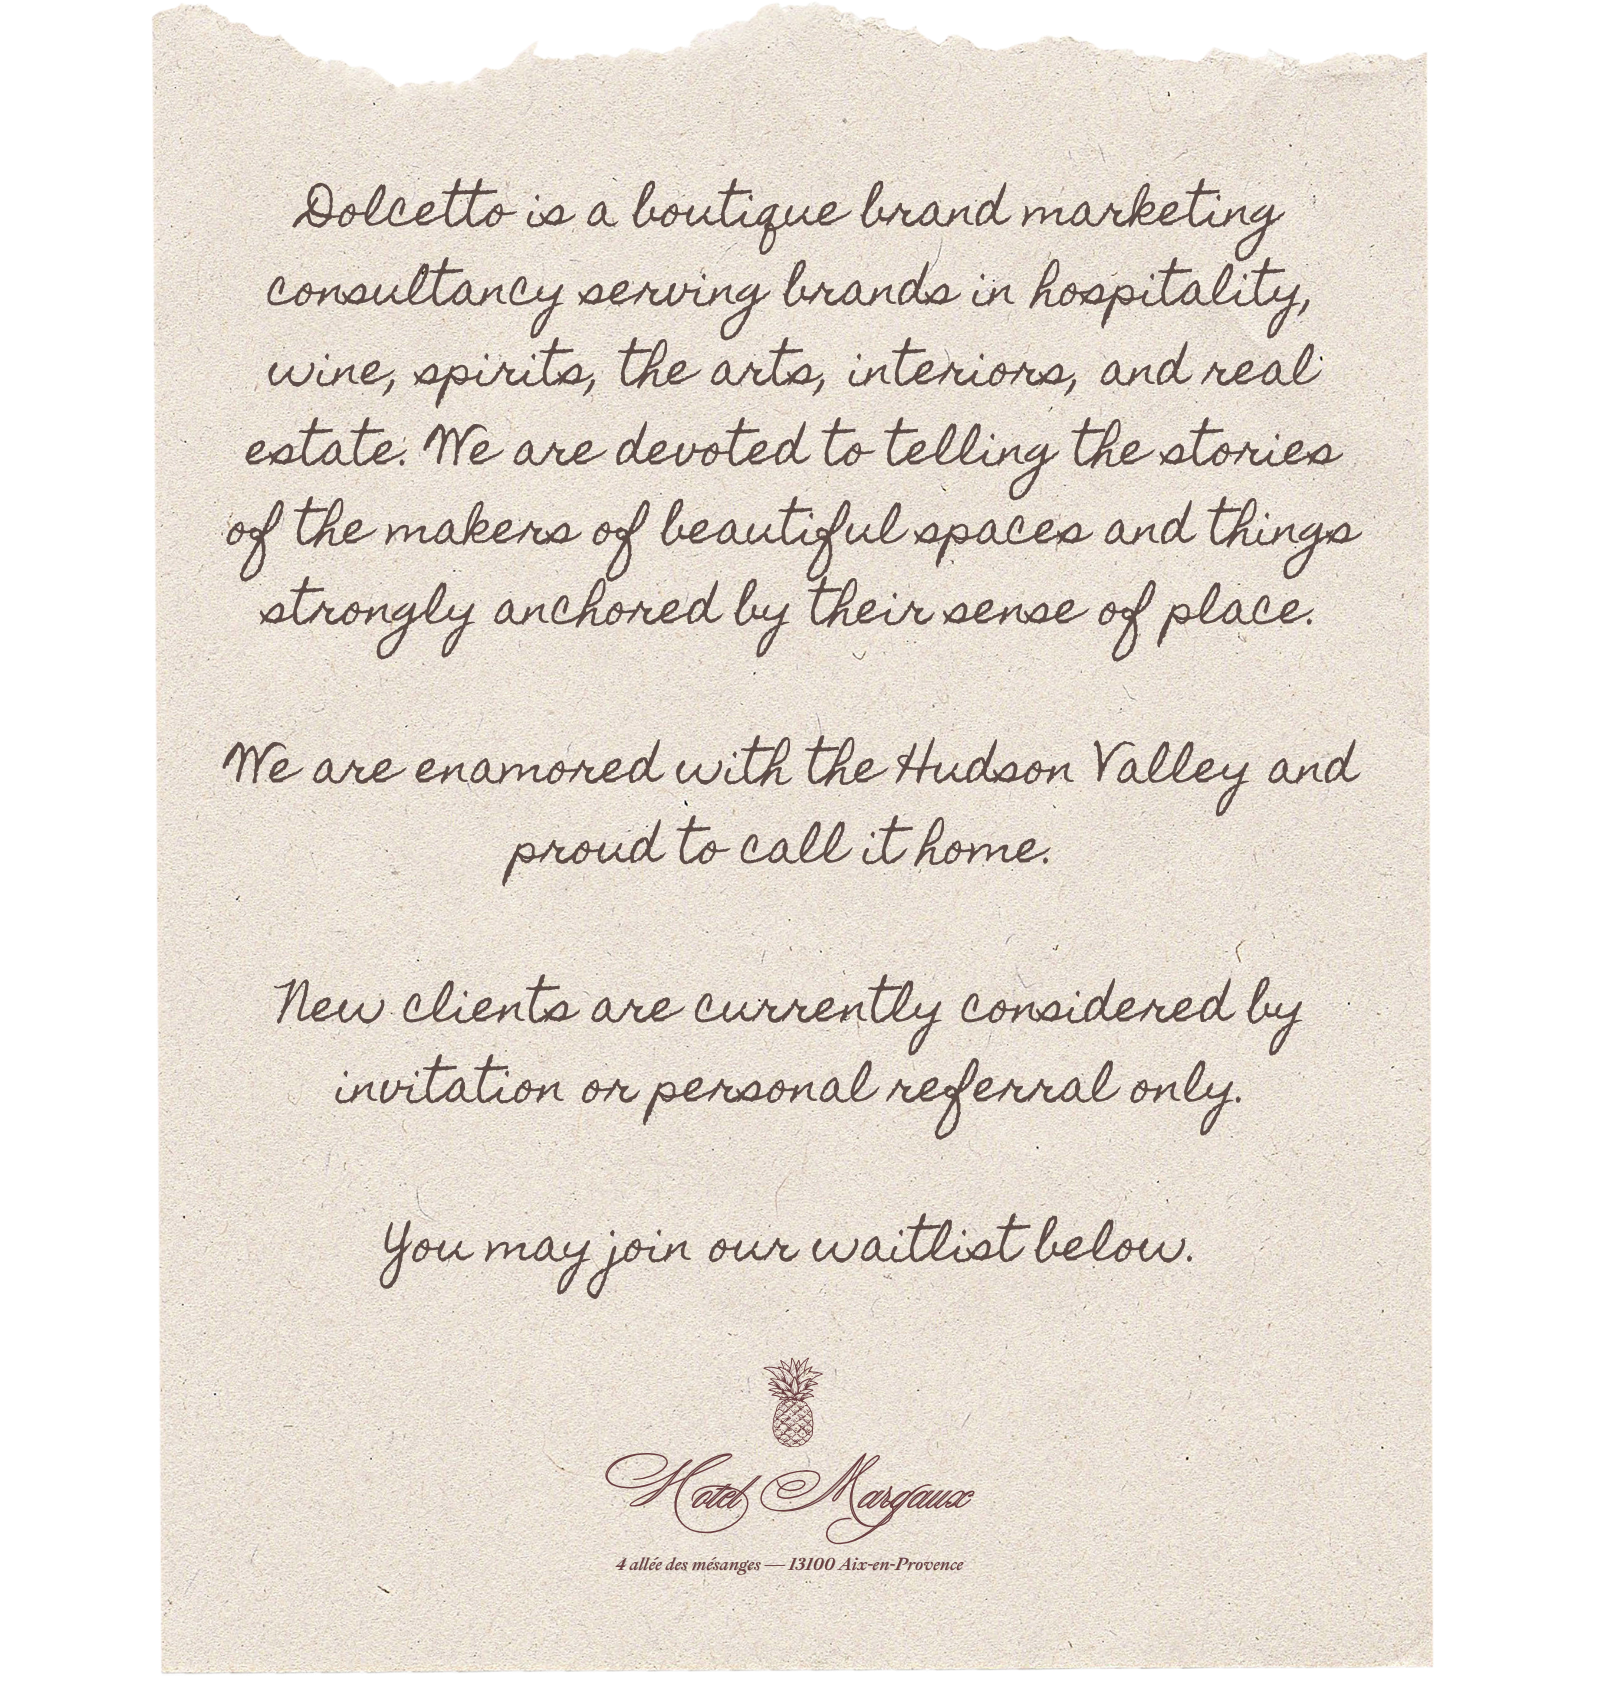 Dolcetto is a boutique brand marketing
consultancy serving brands in hospitality,
wine, spirits, the arts, interiors, and real
estate. We are devoted to telling the stories
of the makers of beautiful spaces and things
strongly anchored by their sense of place.
We are enamored with the Hudson Valley and
proud to call it home.
New clients are currently considered by
invitation or personal referral only.
You may join our waitlist below.
Hotel Margaux
4 allée des mésanges — 13100 Aix-en-Provence